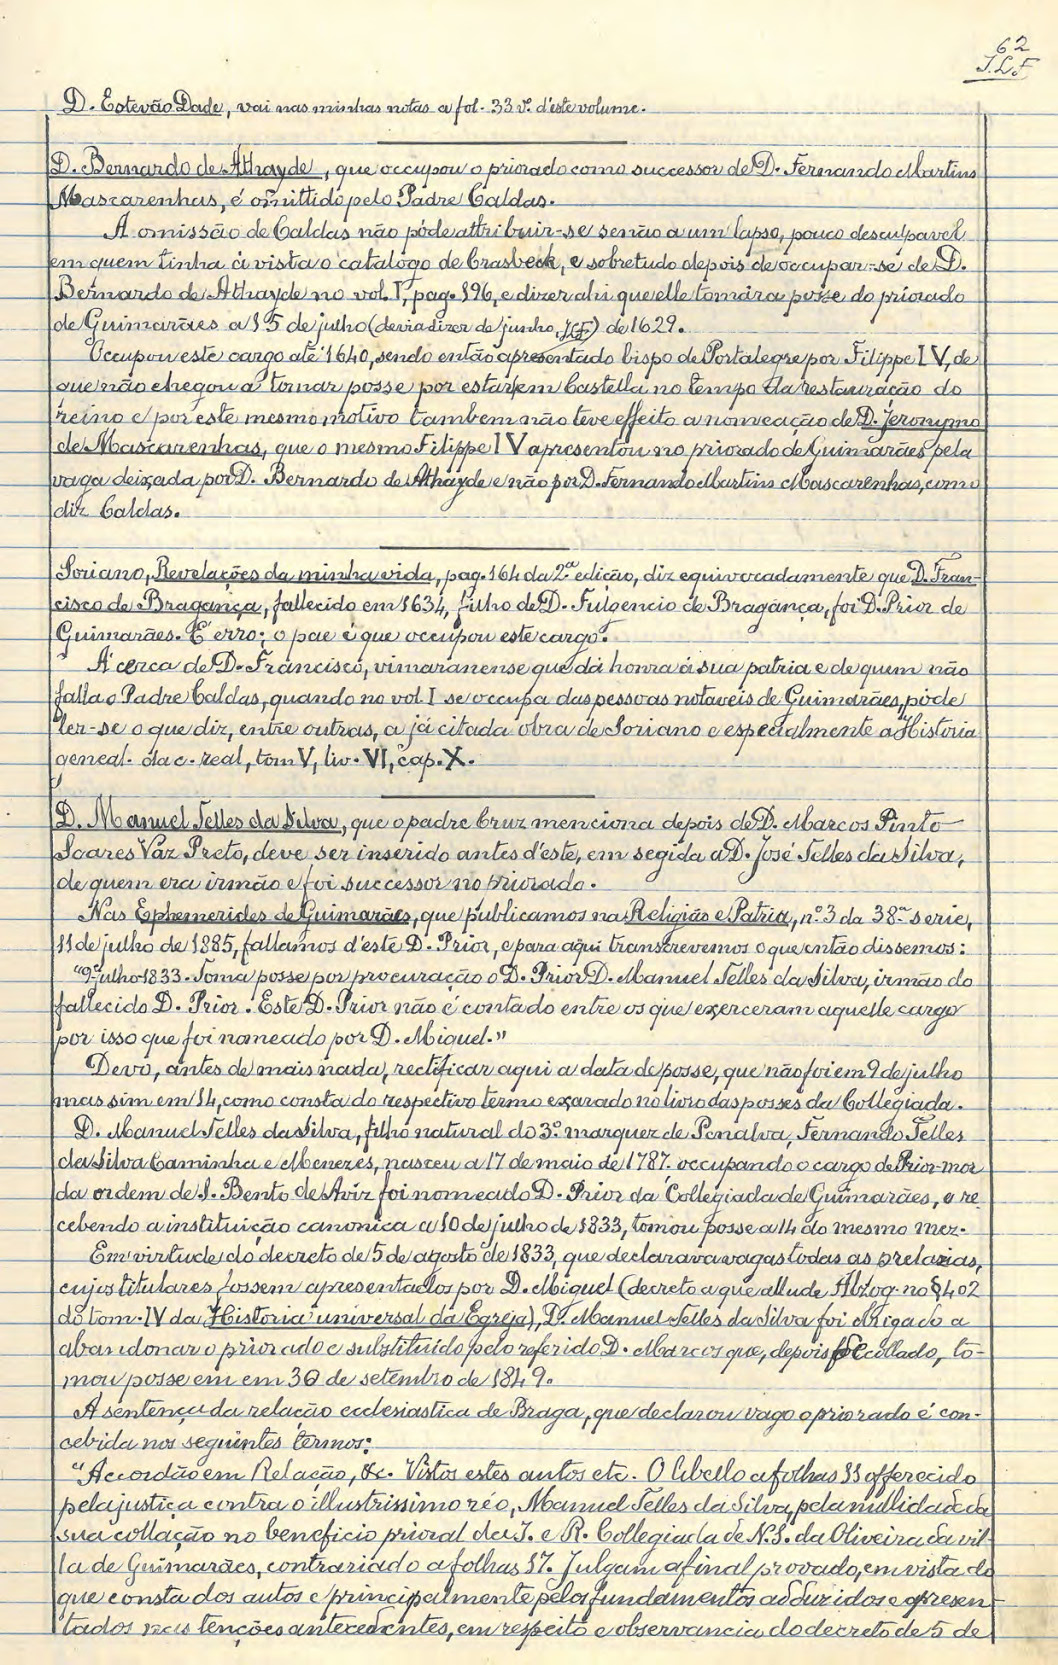 62
J.L.F
D. Estevão Dade, vai nas minhas notas a fol. 33 vº. d'este volume.
D. Bernardo de Athayde, que occupou o priorado como successor de D. Fernando Martins
Mascarenhas, é omittido pelo Padre Caldas.
A omissão de Caldas não póde attribuir-se senão a um lapso, pouco desculpavel
em quem tinha á vista o catalogo de Crasbeck, e sobretudo depois de occupar-se de D.
Bernardo de Athayde no vol. I, pag. 196, e dizer ahi que elle tomára posse do priorado
de Guimarães a 15 de julho (devia dizer de junho, JLF) de 1629.
Occupou este cargo até 1640, sendo então apresentado bispo de Portalegre por Filippe IV, de
que não chegou a tomar posse por estar em Castella no tempo da restauração do
reino e por este mesmo motivo tambem não teve effeito a nomeação de D. Jeronymo
de Mascarenhas, que o mesmo Filippe IV apresentou no priorado de Guimarães pela
vaga deixada por D. Bernardo de Athayde e não por D. Fernando Martins Mascarenhas, como
diz Caldas.
Soriano, Revelações da minha vida, pag. 164 da 2.ª edição, diz equivocadamente que D. Fran-
cisco de Bragança, fallecido em 1634, filho de D. Fulgencio de Bragança, foi D. Prior de
Guimarães. É erro; o pae é que occupou este cargo.
Á cerca de D. Francisco, vimaranense que dá honra á sua patria e de quem não
falla o Padre Caldas, quando no vol. I se occupa das pessoas notaveis de Guimarães, póde
ler-se o que diz, entre outras, a já citada obra de Soriano e especialmente a Historia
geneal. da c. real, tom V, liv. VI, cap. X.
D. Manuel Telles da Silva, que o padre Cruz menciona depois de D. Marcos Pinto
Soares Vaz Preto, deve ser inserido antes d'este, em segida a D. José Telles da Silva,
de quem era irmão e foi successor no priorado.
Nas Ephemerides de Guimarães, que publicamos na Religião e Patria, n.º 3 da 38.ª serie,
11 de julho de 1885, fallamos d'este D. Prior, e para aqui transcrevemos o que então dissemos:
"9-julho-1833. Toma posse por procuração o D. Prior D. Manuel Telles da Silva, irmão do
fallecido D. Prior. Este D. Prior não é contado entre os que exerceram aquelle cargo
por isso que foi nomeado por D. Miguel."
Devo, antes de mais nada, rectificar aqui a data de posse, que não foi em 9 de julho
mas sim em 14, como consta do respectivo termo exarado no livro das posses da Collegiada.
D. Manuel Telles da Silva, filho natural do 3.º marquez de Penalva, Fernando Telles
da Silva Caminha e Menezes, nasceu a 17 de maio de 1787. occupando o cargo de Prior-mor
da ordem de S. Bento de Aviz foi nomeado D. Prior da Collegiada de Guimarães, e re-
cebendo a instituição canonica a 10 de julho de 1833, tomou posse a 14 do mesmo mez.
Em virtude do decreto de 5 de agosto de 1833, que declarava vagas todas as prelazias,
cujos titulares fossem apresentados por D. Miguel (decreto a que allude Alzog. no § 402
do tom. IV da Historia universal da Egreja), D. Manuel Telles da Silva foi obrigado a
abandonar o priorado e substituído pelo referido D. Marcos que, depois de collado, to-
mou posse em em 30 de setembro de 1849.
A sentença da relação ecclesiastica de Braga, que declarou vago o priorado é con-
cebida nos seguintes termos:
"Accordão em Relação, &c. Vistos estes autos etc. O libello a folhas 11 offerecido
pela justiça contra o illustrissimo réo, Manuel Telles da Silva, pela nullidade da
sua collação no beneficio prioral da I. e R. Collegiada de N. S. da Oliveira da vil-
la de Guimarães, contrariado a folhas 17. Julgam afinal provado, em vista do
que consta dos autos e principalmente pelos fundamentos adduzidos e apresen-
tados nas tenções antecedentes, em respeito e observancia do decreto de 5 de